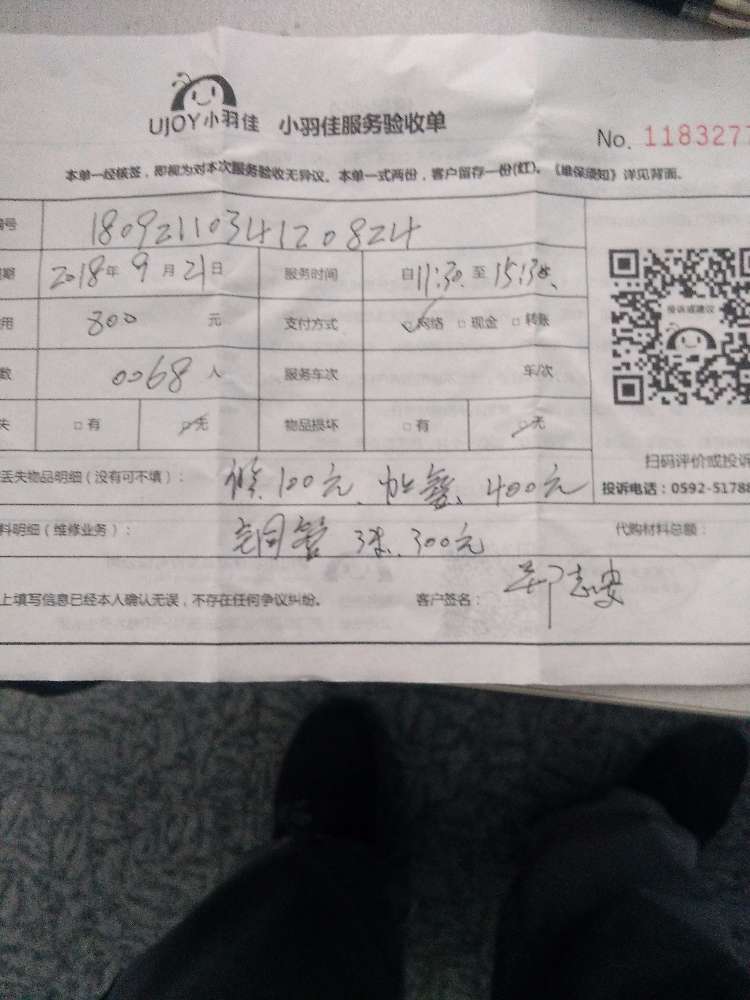 UJOY小羽佳 小羽佳服务验收单
No. 1183277
本单一经核签，即视为对本次服务验收无异议。本单一式两份，客户留存一份(红)。《维保须知》详见背面。
号 180921103412 0824
期 2018年9月21日 服务时间 自11:30至15:30
用 800 元 支付方式 网络 现金 转账
投诉或建议
数 0068 人 服务车次 车/次
失 有 无 物品损坏 有 无
扫码评价或投诉
丢失物品明细（没有可不填）： 100元 400元
投诉电话：0592-51788
料明细（维修业务）： 铜管 3米 300元 代购材料总额：
上填写信息已经本人确认无误，不存在任何争议纠纷。 客户签名： 志安